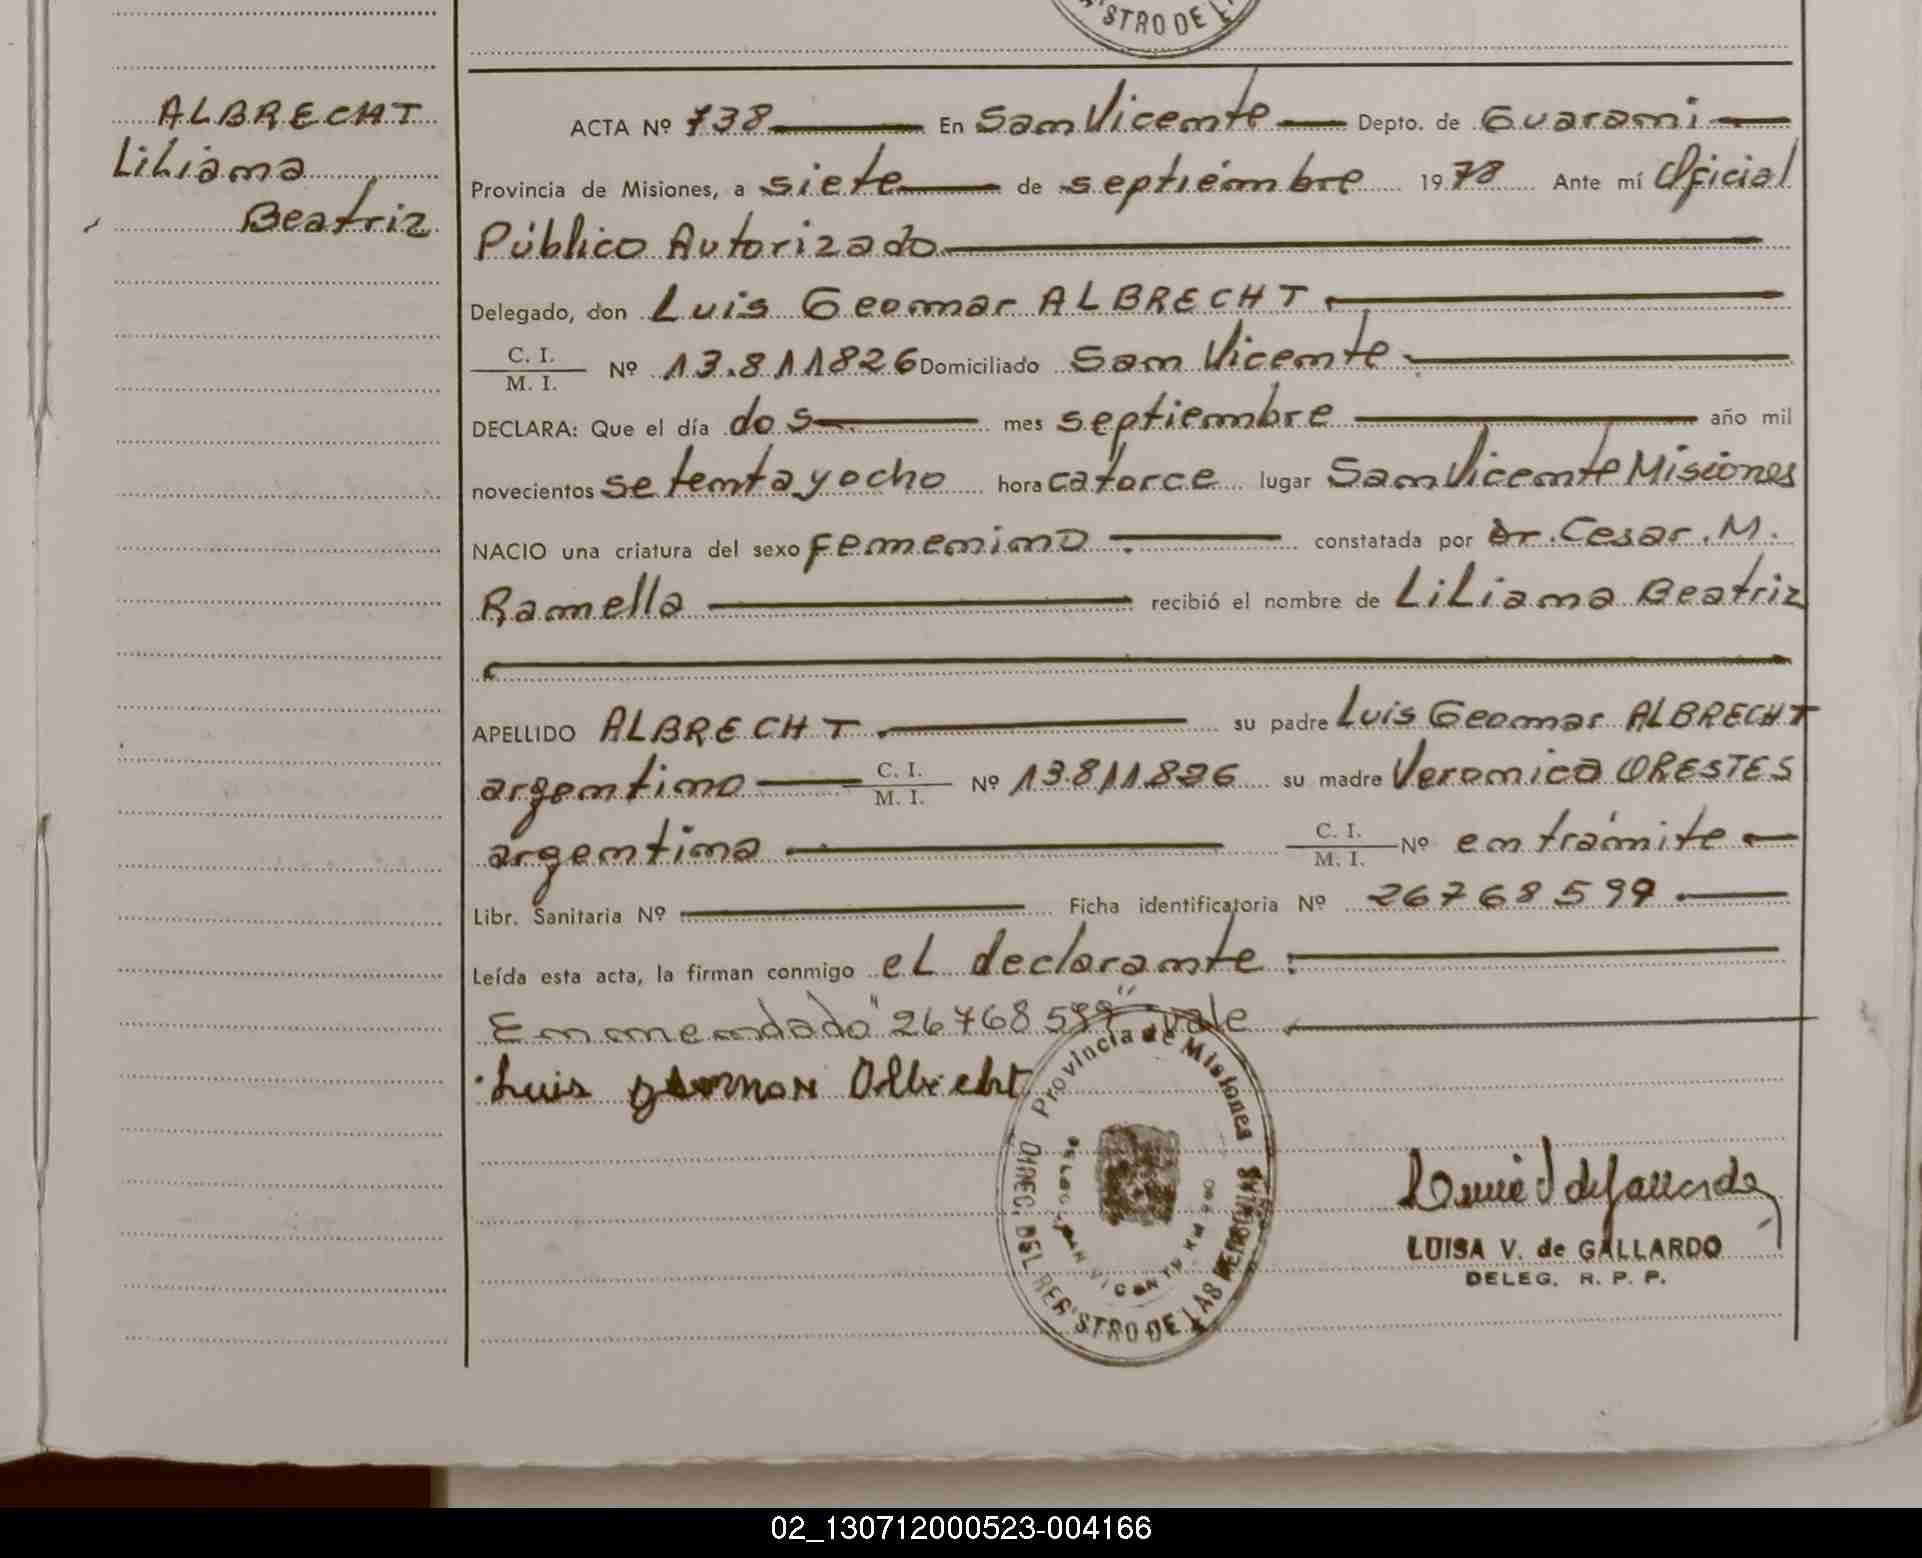 STRO DE L
ALBRECHT
Liliana
Beatriz
ACTA Nº 738 En San Vicente Depto. de Guarani
Provincia de Misiones, a siete de septiembre 1978 Ante mí Oficial
Público Autorizado
Delegado, don Luis Geomar ALBRECHT
C. I.
M. I. Nº 13.811826 Domiciliado San Vicente
DECLARA: Que el día dos mes septiembre año mil
novecientos setenta y ocho hora catorce lugar San Vicente Misiones
NACIO una criatura del sexo femenino constatada por Dr. Cesar. M.
Ramella recibió el nombre de Liliana Beatriz
APELLIDO ALBRECHT su padre Luis Geomar ALBRECHT
argentino C. I. M. I. Nº 13.811826 su madre Veronica ORESTES
argentina C. I. M. I. Nº en trámite
Libr. Sanitaria Nº Ficha identificatoria Nº 26768599
Leída esta acta, la firman conmigo el declarante
Enmendado "26768599" vale
Luis Albrecht
Provincia de Misiones
DIREC. DEL REGISTRO DE LAS PERSONAS
LUISA V. de GALLARDO
DELEG. R. P. P.
02_130712000523-004166